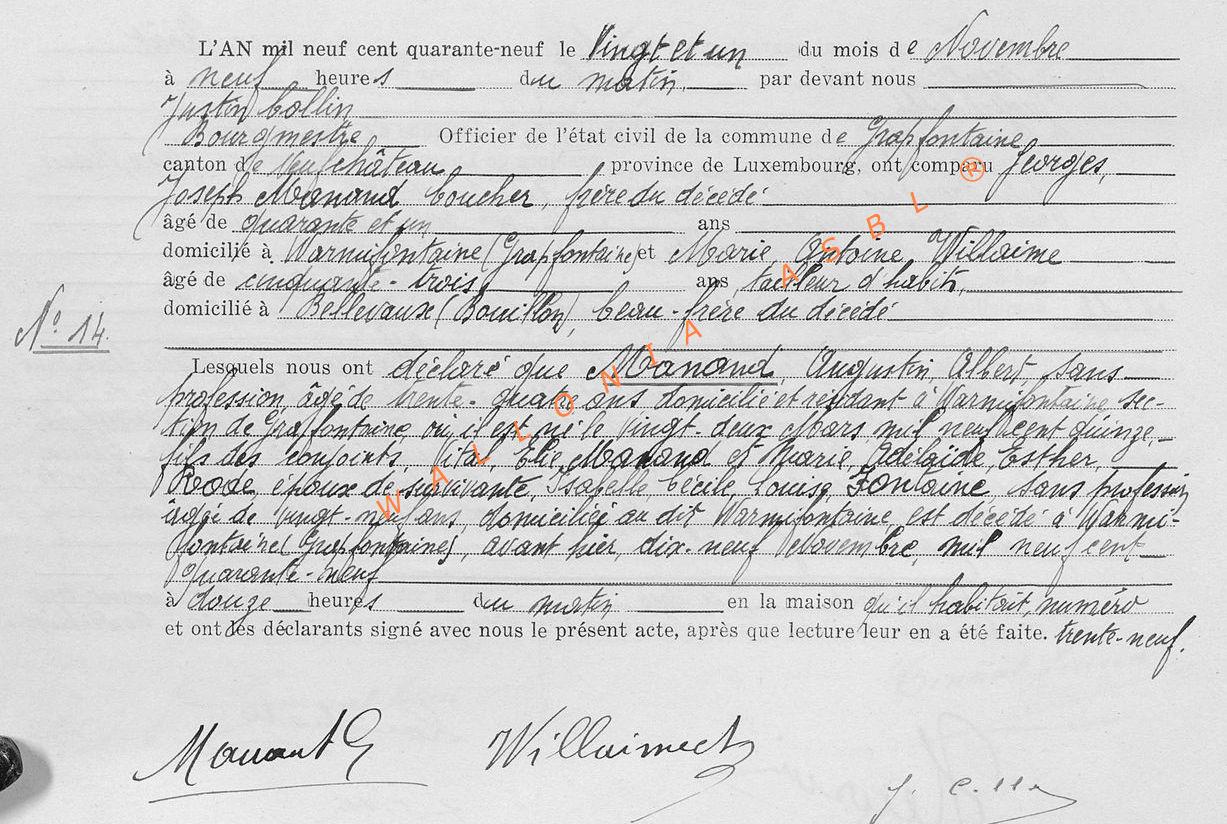 L'AN mil neuf cent quarante-neuf le Vingt et un du mois de Novembre
à neuf heures du matin par devant nous
Justin Collin
Bourgmestre Officier de l'état civil de la commune de Grapfontaine
canton de Neufchâteau province de Luxembourg, ont comparu Georges,
Joseph Manand boucher, frère du décédé
âgé de quarante et un ans
domicilié à Warmifontaine (Grapfontaine) et Marie, Antoine, Willaime
âgé de cinquante-trois ans tailleur d'habits,
domicilié à Bellevaux (Bouillon), beau-frère du décédé
No 14.
Lesquels nous ont déclaré que Manand, Augustin, Albert, sans
profession, âgé de trente-quatre ans domicilié et résidant à Warmifontaine sec-
tion de Grapfontaine, où il est né le vingt-deux Mars mil neuf cent quinze,
fils des conjoints, Vital, Elie Manand et Marie, Adélaïde, Esther,
Rode, époux de survivante, Isabelle, Cécile, Louise, Fontaine, sans profession
âgée de vingt-neuf ans, domiciliée au dit Warmifontaine, est décédé à Warmi-
fontaine (Grapfontaine), avant hier, dix-neuf Novembre, mil neuf cent
quarante-neuf
à douze heures du matin en la maison qu'il habitait, numéro
et ont les déclarants signé avec nous le présent acte, après que lecture leur en a été faite. trente-neuf.
WALLONIA ASBL ®
Manant G Willaime